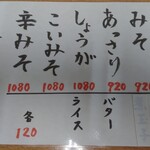 みそ 920
あっさり 920
しょうが 1080
こいみそ 1080
辛みそ 1080
バター
ライス
各120